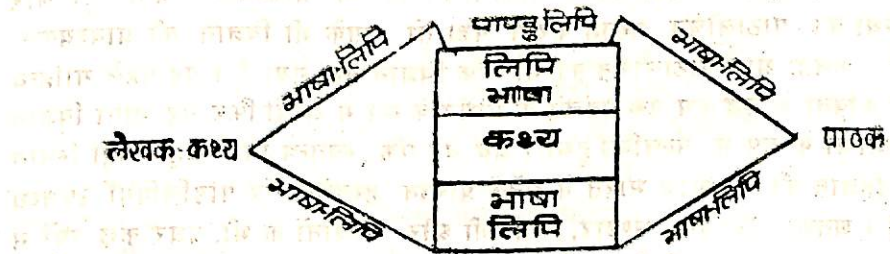 पाण्डुलिपि
भाषा-लिपि
भाषा-लिपि
लिपि
भाषा
लेखक-कथ्य
कथ्य
पाठक
भाषा-लिपि
भाषा
लिपि
भाषा-लिपि